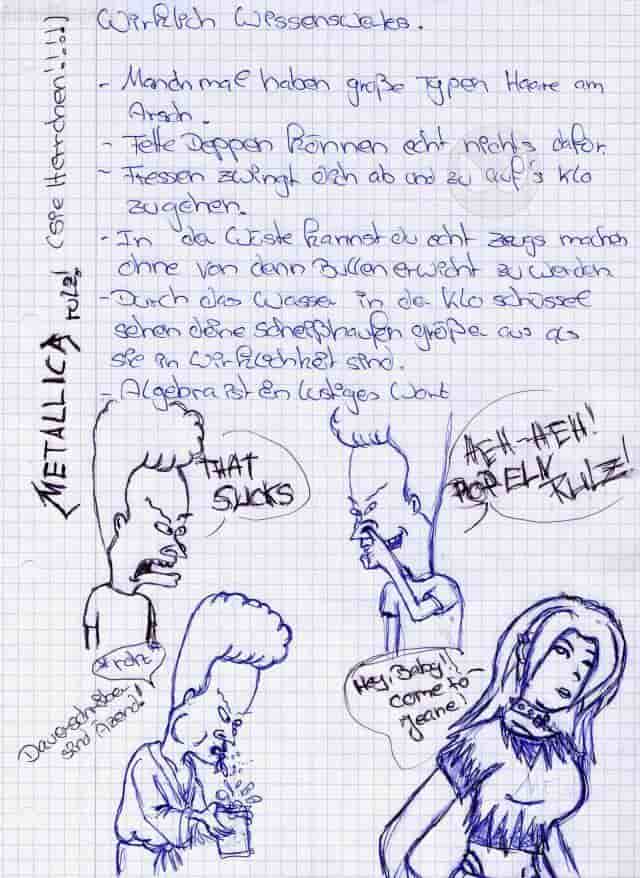 Wirklich Wissenswertes.
- Manchmal haben große Typen Haare am
Arsch.
- Fette Deppen können echt nichts dafür.
- Fressen zwingt dich ab und zu auf's Klo
zu gehen.
- In der Wüste kannst du echt zeugs machen
ohne von denn Bullen erwicht zu werden
- Durch das Wasser in der Klo schüssel
sehen deine scheißhaufen größer aus als
sie in Wirklichkeit sind.
- Algebra ist ein lustiges Wort
METALLICA rulz! (sie Herrchen!!..!!)
THAT
SUCKS
HEH-HEH!
POPELN
RULZ!
Dauerschreiber
sind Ätzend!
Hey, Baby!!
come to
Jeane!